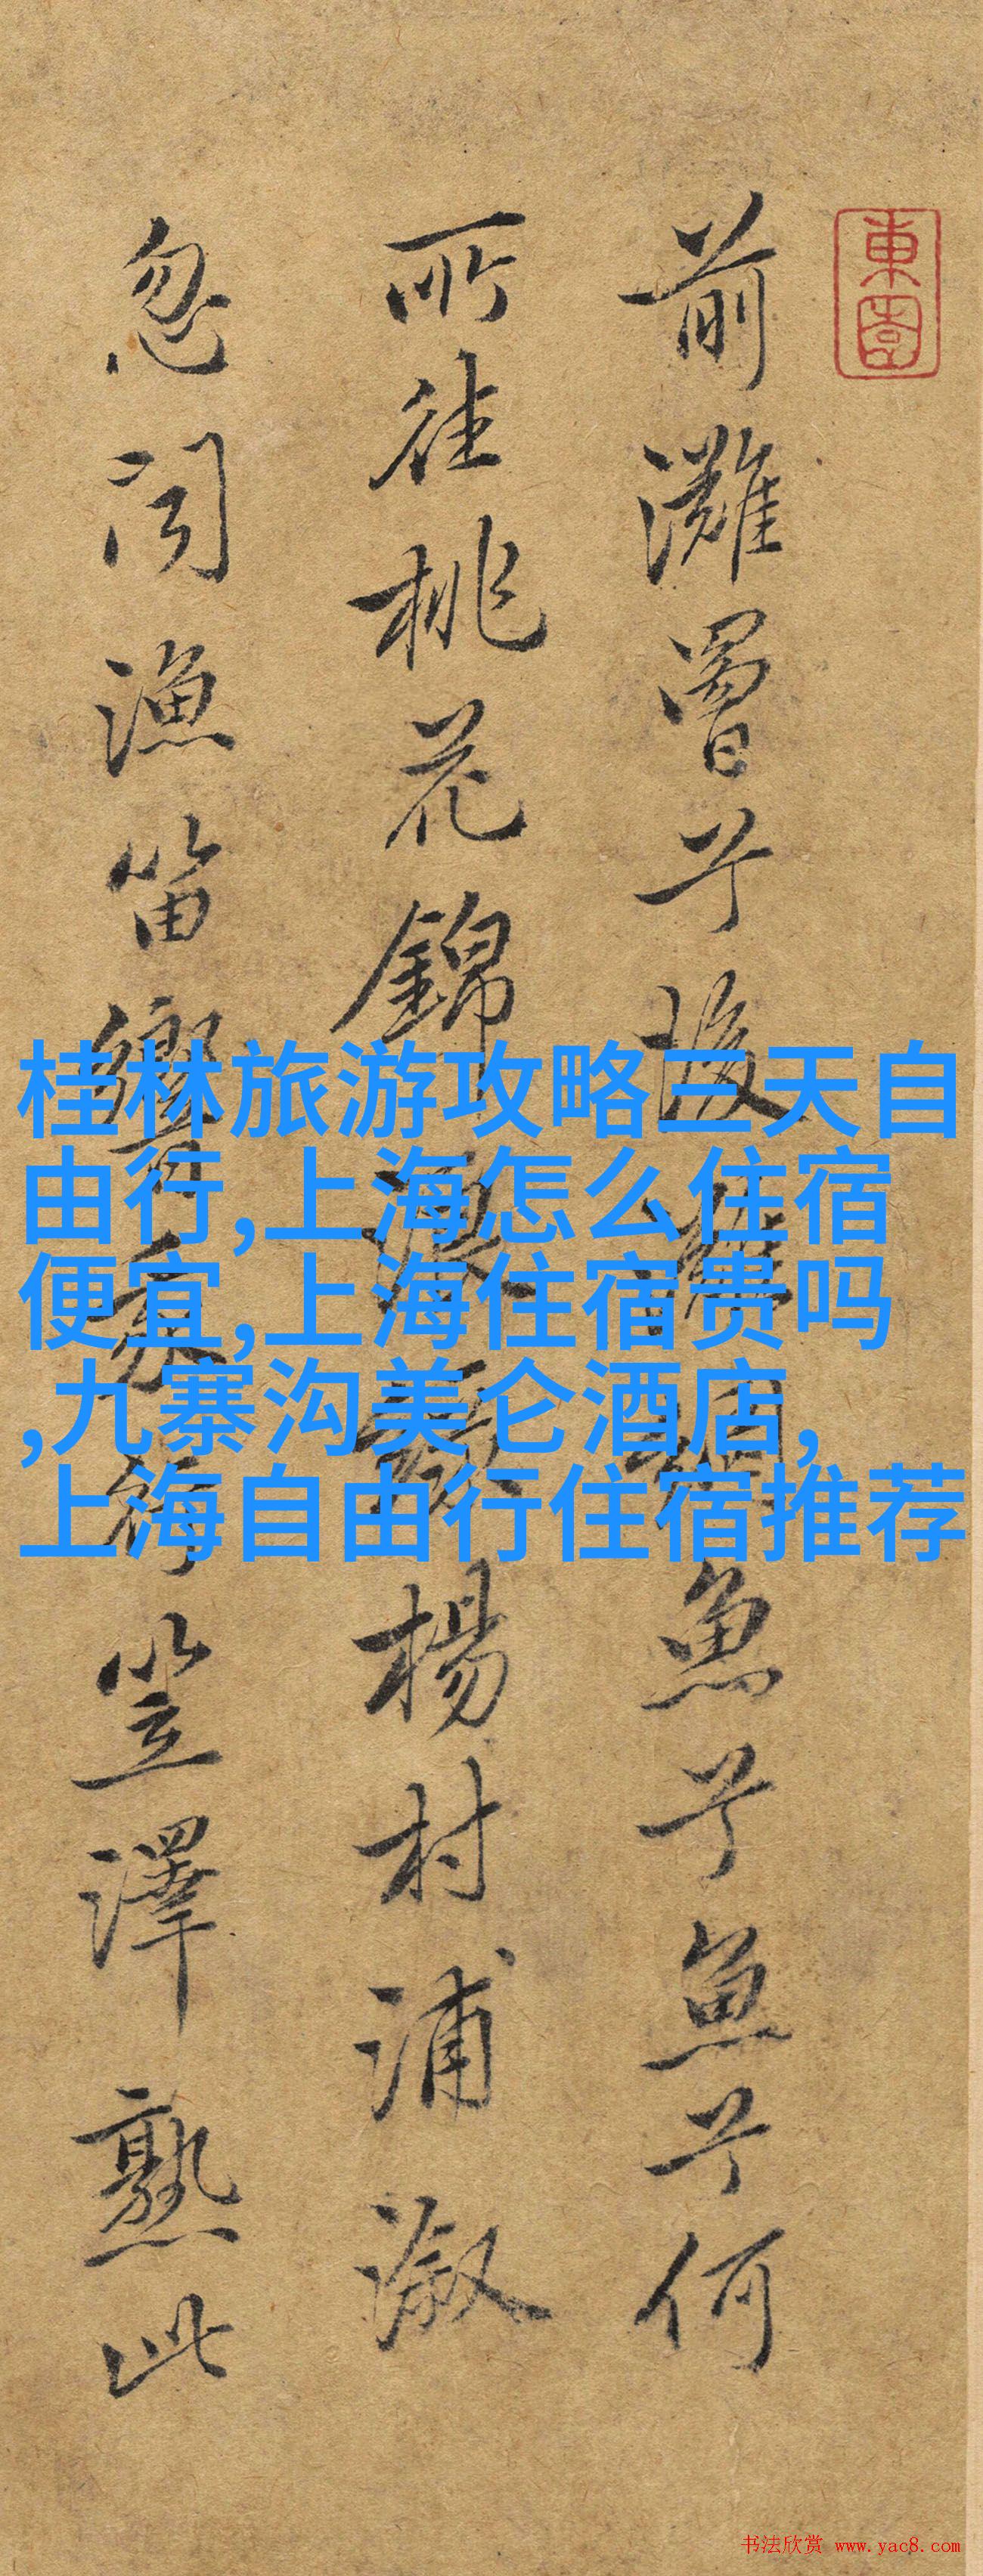 東園
前灘罾子後
魚子魚子何
所在桃花錦浪
楊村浦溆
忽闻漁笛響
笠澤熟此
桂林旅游攻略三天自
由行,上海怎么住宿
便宜,上海住宿贵吗
,九寨沟美仑酒店,
上海自由行住宿推荐
书法欣赏 www.yac8.com